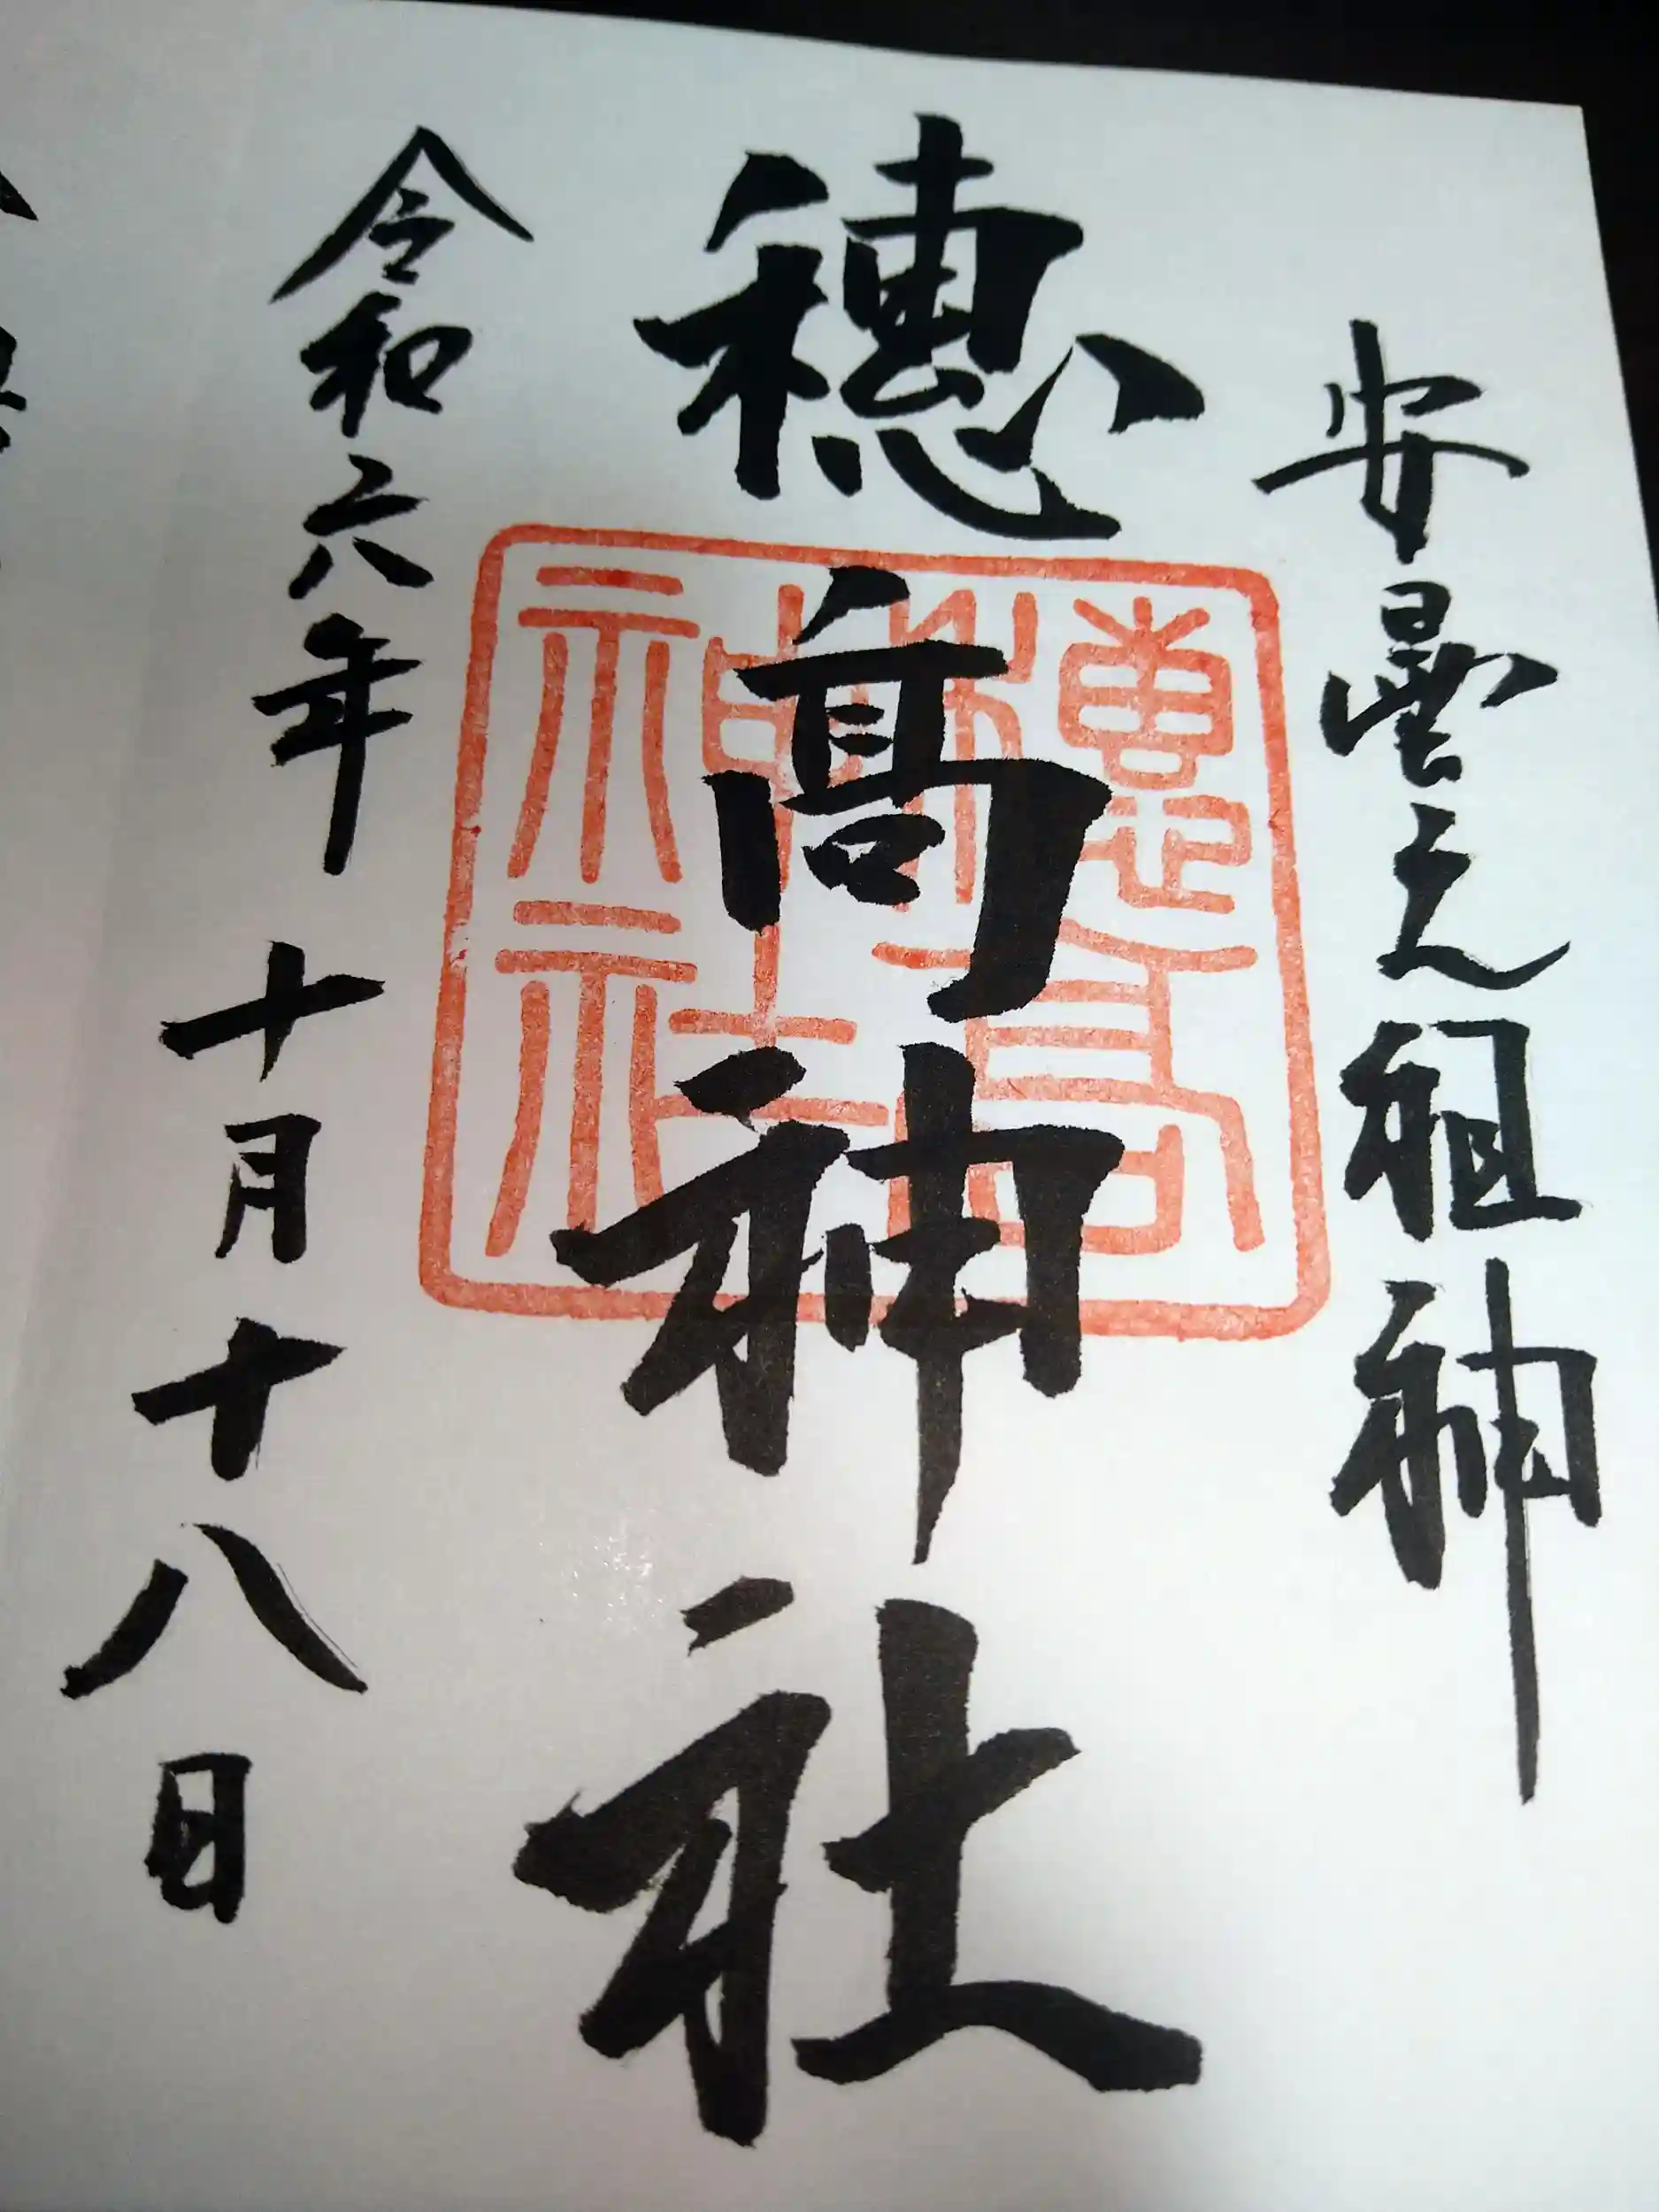 安曇之祖神
穂髙神社
穂髙神社
令和六年 十月十八日